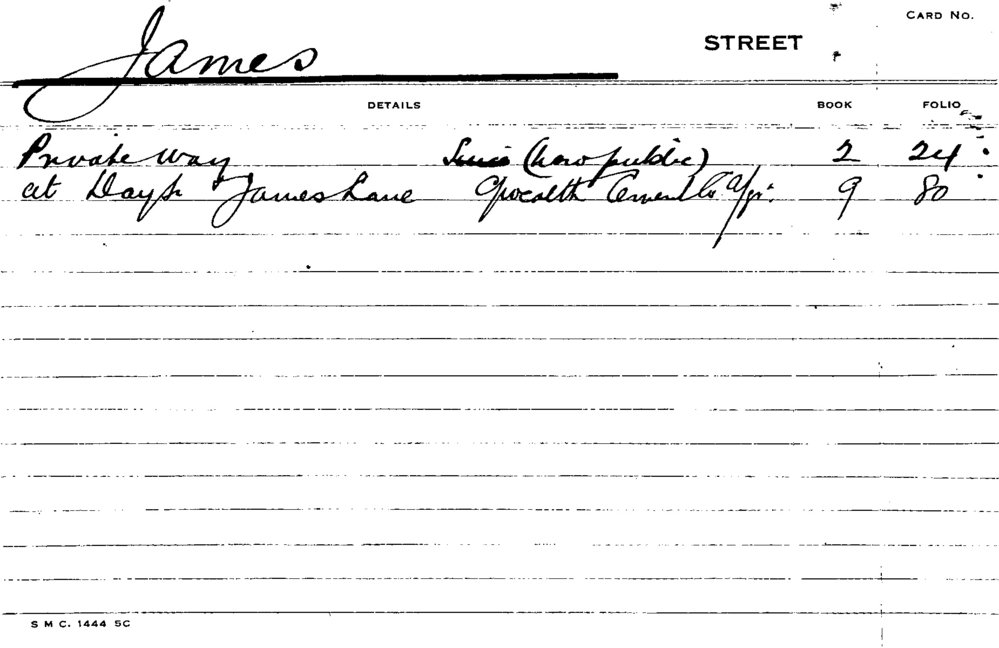 CARD NO.
James STREET
DETAILS BOOK FOLIO
Private way (now public) 2 24
at James Lane Cement Co 9 80
S M C. 1444 5C